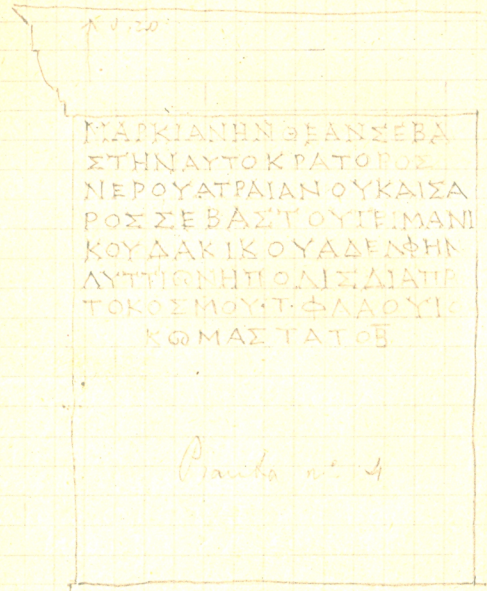 N. 0,20
ΜΑΡΚΙΑΝΗΝΘΕΑΝΣΕΒΑ
ΣΤΗΝΑΥΤΟΚΡΑΤΟΡΟΣ
ΝΕΡΟΥΑΤΡΑΙΑΝΟΥΚΑΙΣΑ
ΡΟΣΣΕΒΑΣΤΟΥΓΕΙΜΑΝΙ
ΚΟΥΔΑΚΙΚΟΥΑΔΕΛΦΗΝ
ΛΥΤΤΙΩΝΗΠΟΛΙΣΔΙΑΠΡ
ΤΟΚΟΣΜΟΥ·Τ·ΦΛΑΟΥΙ
ΚΩΜΑΣΤΑΤΟ
nº 4